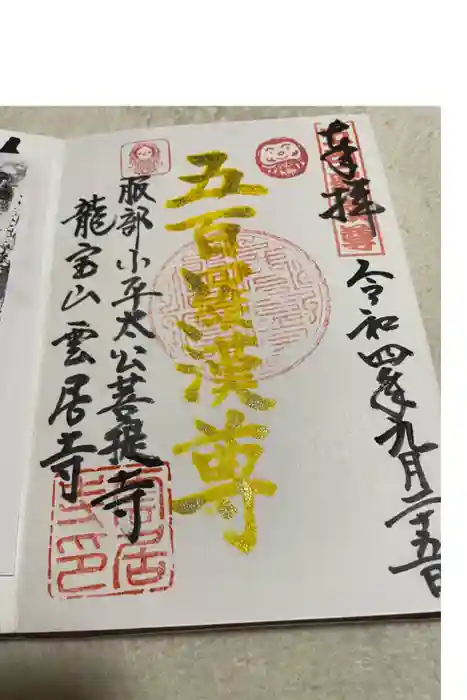 奉拝
令和四年九月二十五日
五百羅漢尊
服部小平太公菩提寺
龍宝山雲居寺